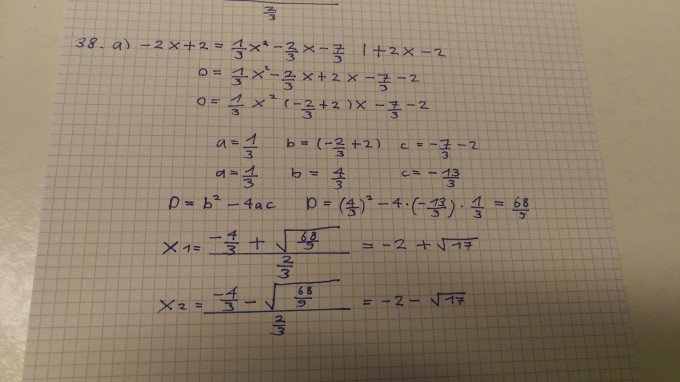 2/3
38. a) -2x+2 = 1/3 x² - 2/3 x - 7/3 |+2x-2
0 = 1/3 x² - 2/3 x + 2x - 7/3 - 2
0 = 1/3 x² (-2/3+2)x - 7/3 - 2
a = 1/3 b = (-2/3+2) c = -7/3 - 2
a = 1/3 b = 4/3 c = -13/3
D = b² - 4ac D = (4/3)² - 4·(-13/3)·1/3 = 68/9
x1 = (-4/3 + √(68/9))/(2/3) = -2 + √17
x2 = (-4/3 - √(68/9))/(2/3) = -2 - √17